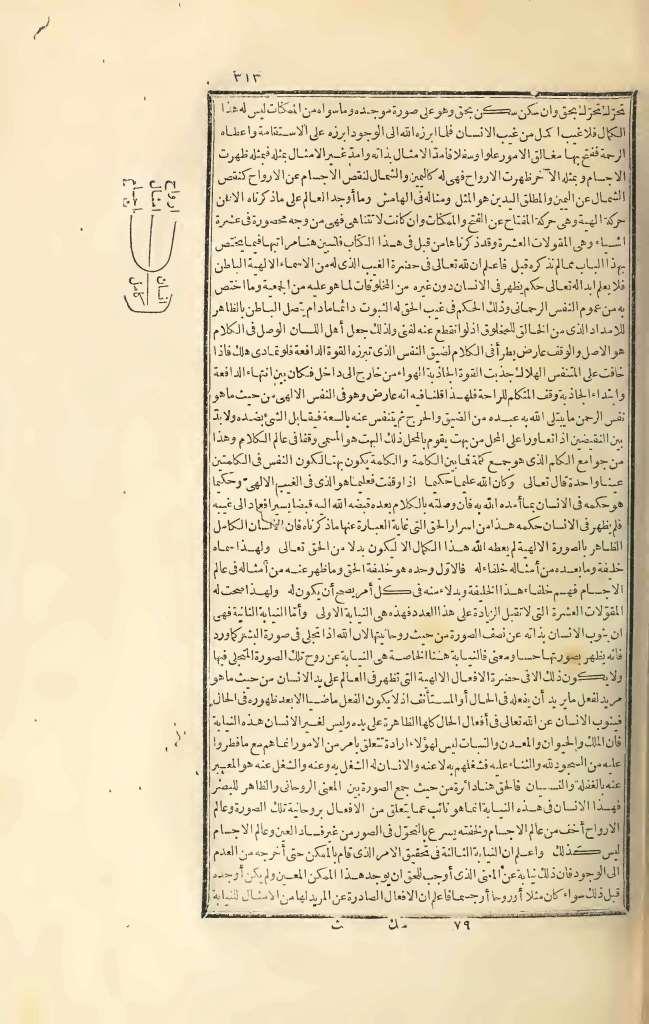 ٣١٣
تحرّك تحرّك بحق وان سكن سكن بحق وهو على صورة موجده وما سواه من الممكنات ليس له هذا
الكمال فلا غيب اكمل من غيب الانسان فلما ابرزه الله الى الوجود ابرزه على الاستقامة واعطاه
الرحمة ففتح بها مغالق الامور علوا وسفلا فامدّ الامثال بذاته وامدّ غير الامثال بمثله فبمثله ظهرت
الاجسام وبمثله الآخر ظهرت الارواح فهى له كاليمين والشمال لنقص الاجسام عن الارواح كنقص
الشمال عن اليمين والمطلق اليدين هو المثل ومثاله فى الهامش وما أوجد العالم على ماذكرناه الا عن
حركة الهية وهى حركة المفتاح عن الفتح والممكنات وان كانت لا تتناهى فهى من وجه محصورة فى عشرة
اشياء وهى المقولات العشرة وقد ذكرناها من قبل فى هذا الكتاب فلنبين هنا مراتبها فيما يختص
بهذا الباب مما لم نذكره قبل فاعلم ان لله تعالى فى حضرة الغيب الذى له من الاسماء الالهية الباطن
فلا يعلم ابدا له تعالى حكم يظهر فى الانسان دون غيره من المخلوقات لما هو عليه من الجمعية وما اختص
به من عموم النفس الرحمانى وذلك الحكم فى غيب الحق له الثبوت دائما مادام يتصل الباطن بالظاهر
للامداد الذى من الخالق للمخلوق اذ لو انقطع عنه لفنى ولذلك جعل أهل اللسان الوصل فى الكلام
هو الاصل والوقف عارض يطرأ فى الكلام لضيق النفس الذى تبرزه القوة الدافعة فلو تمادى هلك فاذا
خافت على المتنفس الهلاك جذبت القوة الجاذبة الهواء من خارج الى داخل فكان بين انتهاء الدافعة
وابتداء الجاذبة وقف المتكلم للراحة فلهذا قلنا فيه انه عارض وهو فى النفس الالهى من حيث ما هو
نفس الرحمن ما يبتلى الله به عبده من الضيق والحرج ثم يتنفس عنه بالسعة فيقابل الشئ بضده ولا بدّ
بين النقيضين اذا تعاورا على المحل من بهت يقوم بالمحل ذلك البهت هو المسمى وقفا فى عالم الكلام وهذا
من جوامع الكلم الذى هو جمع كلمة فما بين الكلمة والكلمة يكون بهتا لكون النفس فى الكلمتين
عينا واحدة قال تعالى وكان الله عليما حكيما اذا وقفت فعليما هو الذى فى الغيب الالهى وحكيما
هو حكمه فى الانسان بما أمده الله به فان وصلته بالكلام بعده قبضه الله اليه قبضا يسيرا فعاد الى غيبه
فلم يظهر فى الانسان حكمه هذا من اسرار الحق التى غاية العبارة عنها ماذكرناه فان الانسان الكامل
الظاهر بالصورة الالهية لم يعطه الله هذا الكمال الا ليكون بدلا من الحق تعالى ولهذا سماه
خليفة وما بعده من أمثاله خلفاء له فالاوّل وحده هو خليفة الحق وما ظهر عنه من أمثاله فى عالم
الاجسام فهم خلفاء هذا الخليفة وبدلاء منه فى كل أمر يصح أن يكون له ولهذا صحت له
المقولات العشرة التى لا تقبل الزيادة على هذا العدد فهذه هى النيابة الاولى وأمّا النيابة الثانية فهى
ان ينوب الانسان بذاته عن نصف الصورة من حيث روحانيتها لان الله اذا تجلى فى صورة البشر كما ورد
فانه يظهر بصورتها حسا ومعنى فالنيابة هنا الخاصة هى النيابة عن روح تلك الصورة المتجلى فيها
ولا يكون ذلك الا فى حضرة الافعال الالهية التى تظهر فى العالم على يد الانسان من حيث ما هو
مريد لفعل ما يريد أن يفعله فى الحال أو المستأنف اذ لا يكون الفعل ماضيا الا بعد ظهوره فى الحال
فينوب الانسان عن الله تعالى فى أفعال الحال كلها الظاهرة على يده وليس لغير الانسان هذه النيابة
فان الملك والحيوان والمعدن والنبات ليس لهؤلاء ارادة تتعلق بامر من الامور انما هم مع ما فطروا
عليه من السجود لله والثناء عليه فشغلهم به لا عنه والانسان له الشغل به وعنه والشغل عنه هو المعبر
عنه بالغفلة والنسيان فالحق هنا دائرة من حيث جمع الصورة بين المعنى الروحانى والظاهر للبصر
فهذا الانسان فى هذه النيابة انما هو نائب عما يتعلق من الافعال بروحانية تلك الصورة وعالم
الارواح أخف من عالم الاجسام ولخفته يسرع بالتحوّل فى الصور من غير فساد العين وعالم الاجسام
ليس كذلك واعلم ان النيابة الثالثة فى تحقيق الامر الذى قام بالممكن حتى أخرجه من العدم
الى الوجود فان ذلك نيابة عن المعنى الذى أوجب للحق ان يوجد هذا الممكن المعين ولم يكن أوجده
قبل ذلك سواء كان مثلا أو روحا أو جسما فاعلم ان الافعال الصادرة عن المريد لها من الامثال للنيابة
٧٩ مك ث
ارواح
امثال
اجسام
انسان
كامل